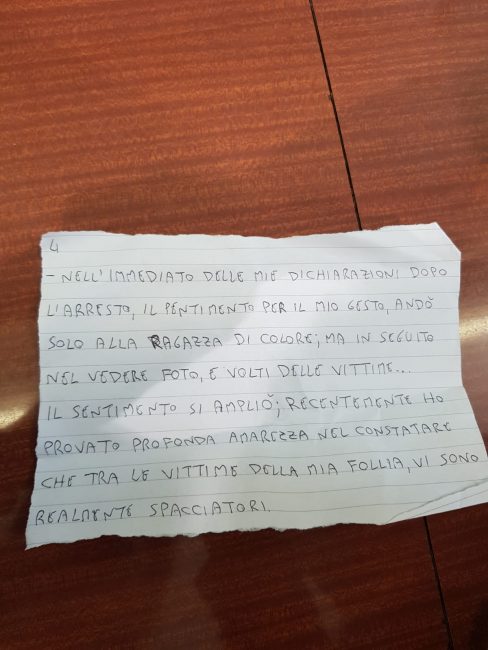 4
- NELL'IMMEDIATO DELLE MIE DICHIARAZIONI DOPO
L'ARRESTO, IL PENTIMENTO PER IL MIO GESTO, ANDÒ
SOLO ALLA RAGAZZA DI COLORE; MA IN SEGUITO
NEL VEDERE FOTO, E VOLTI DELLE VITTIME...
IL SENTIMENTO SI AMPLIÒ; RECENTEMENTE HO
PROVATO PROFONDA AMAREZZA NEL CONSTATARE
CHE TRA LE VITTIME DELLA MIA FOLLIA, VI SONO
REALMENTE SPACCIATORI.